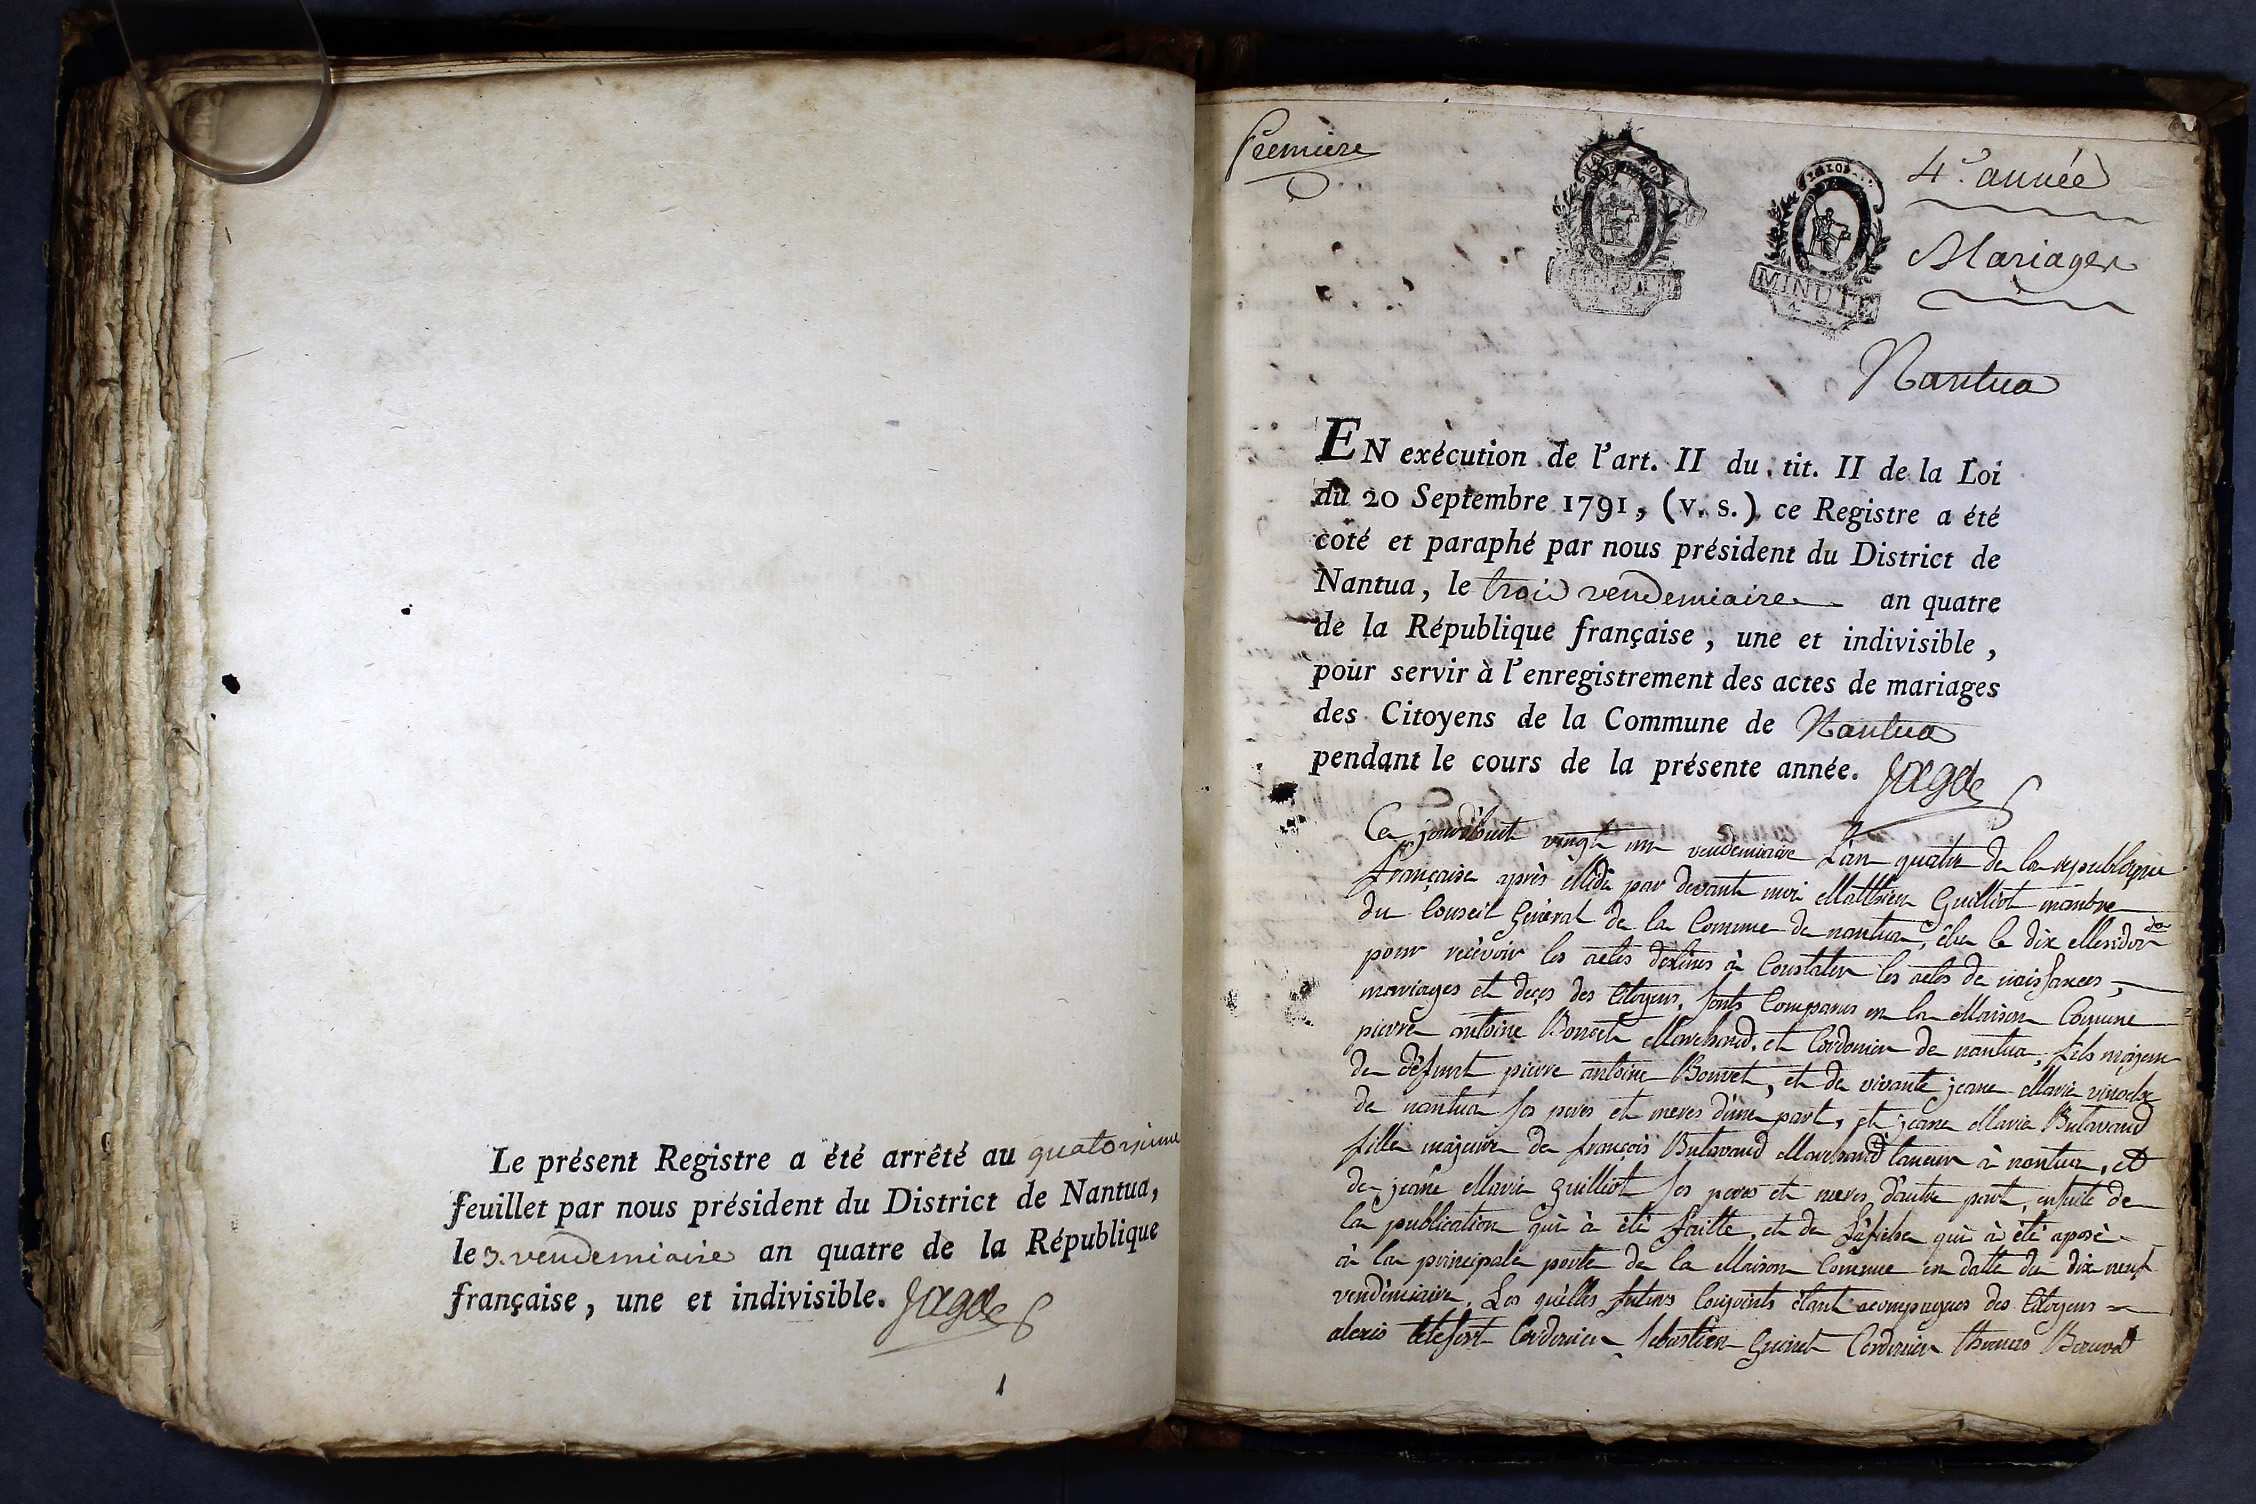 Le présent Registre a été arrêté au quatorsieme
feuillet par nous président du District de Nantua,
le 3. vendemiaire an quatre de la République
française, une et indivisible. Jagot
1
Premiere
4e. année
Mariages
MINUTE
MINUTE
Nantua
EN exécution de l'art. II du tit. II de la Loi
du 20 Septembre 1791, (v. s.) ce Registre a été
coté et paraphé par nous président du District de
Nantua, le trois vendemiaire an quatre
de la République française, une et indivisible,
pour servir à l'enregistrement des actes de mariages
des Citoyens de la Commune de Nantua
pendant le cours de la présente année. Jagot
Ce jourd'huit vingt un vendemiaire L'an quatre de la republique
française après Midi par devant moi Matthieu Guilliot manbre
du Conseil Général de la Commune de nantua, élu le dix Messidor
pour recevoir les actes destines à Constater les actes de naissances,
mariages et deçes des Citoyens, sonts Comparus en la Maison Comune
pierre antoine Bonvet Marchand et Cordonier de nantua, fils majeur
de défunt pierre antoine Bonvet, et de vivante jeane Marie
de nantua ses peres et meres d'une part, et jeane Marie Butavand
fille majeure de françois Butavand Marchand taneur à nantua, et
de jeane Marie guilliot ses peres et meres d'autre part, ensuite de
la publication qui à été faitte, et de l'afiche qui à été aposé
à la principale porte de la Maison Comune en datte du dix neuf
vendémiaire, Les quelles futurs Conjoints étant acompagnes des Citoyens
alexis Cordonier Sebastien Guinet Cordonier